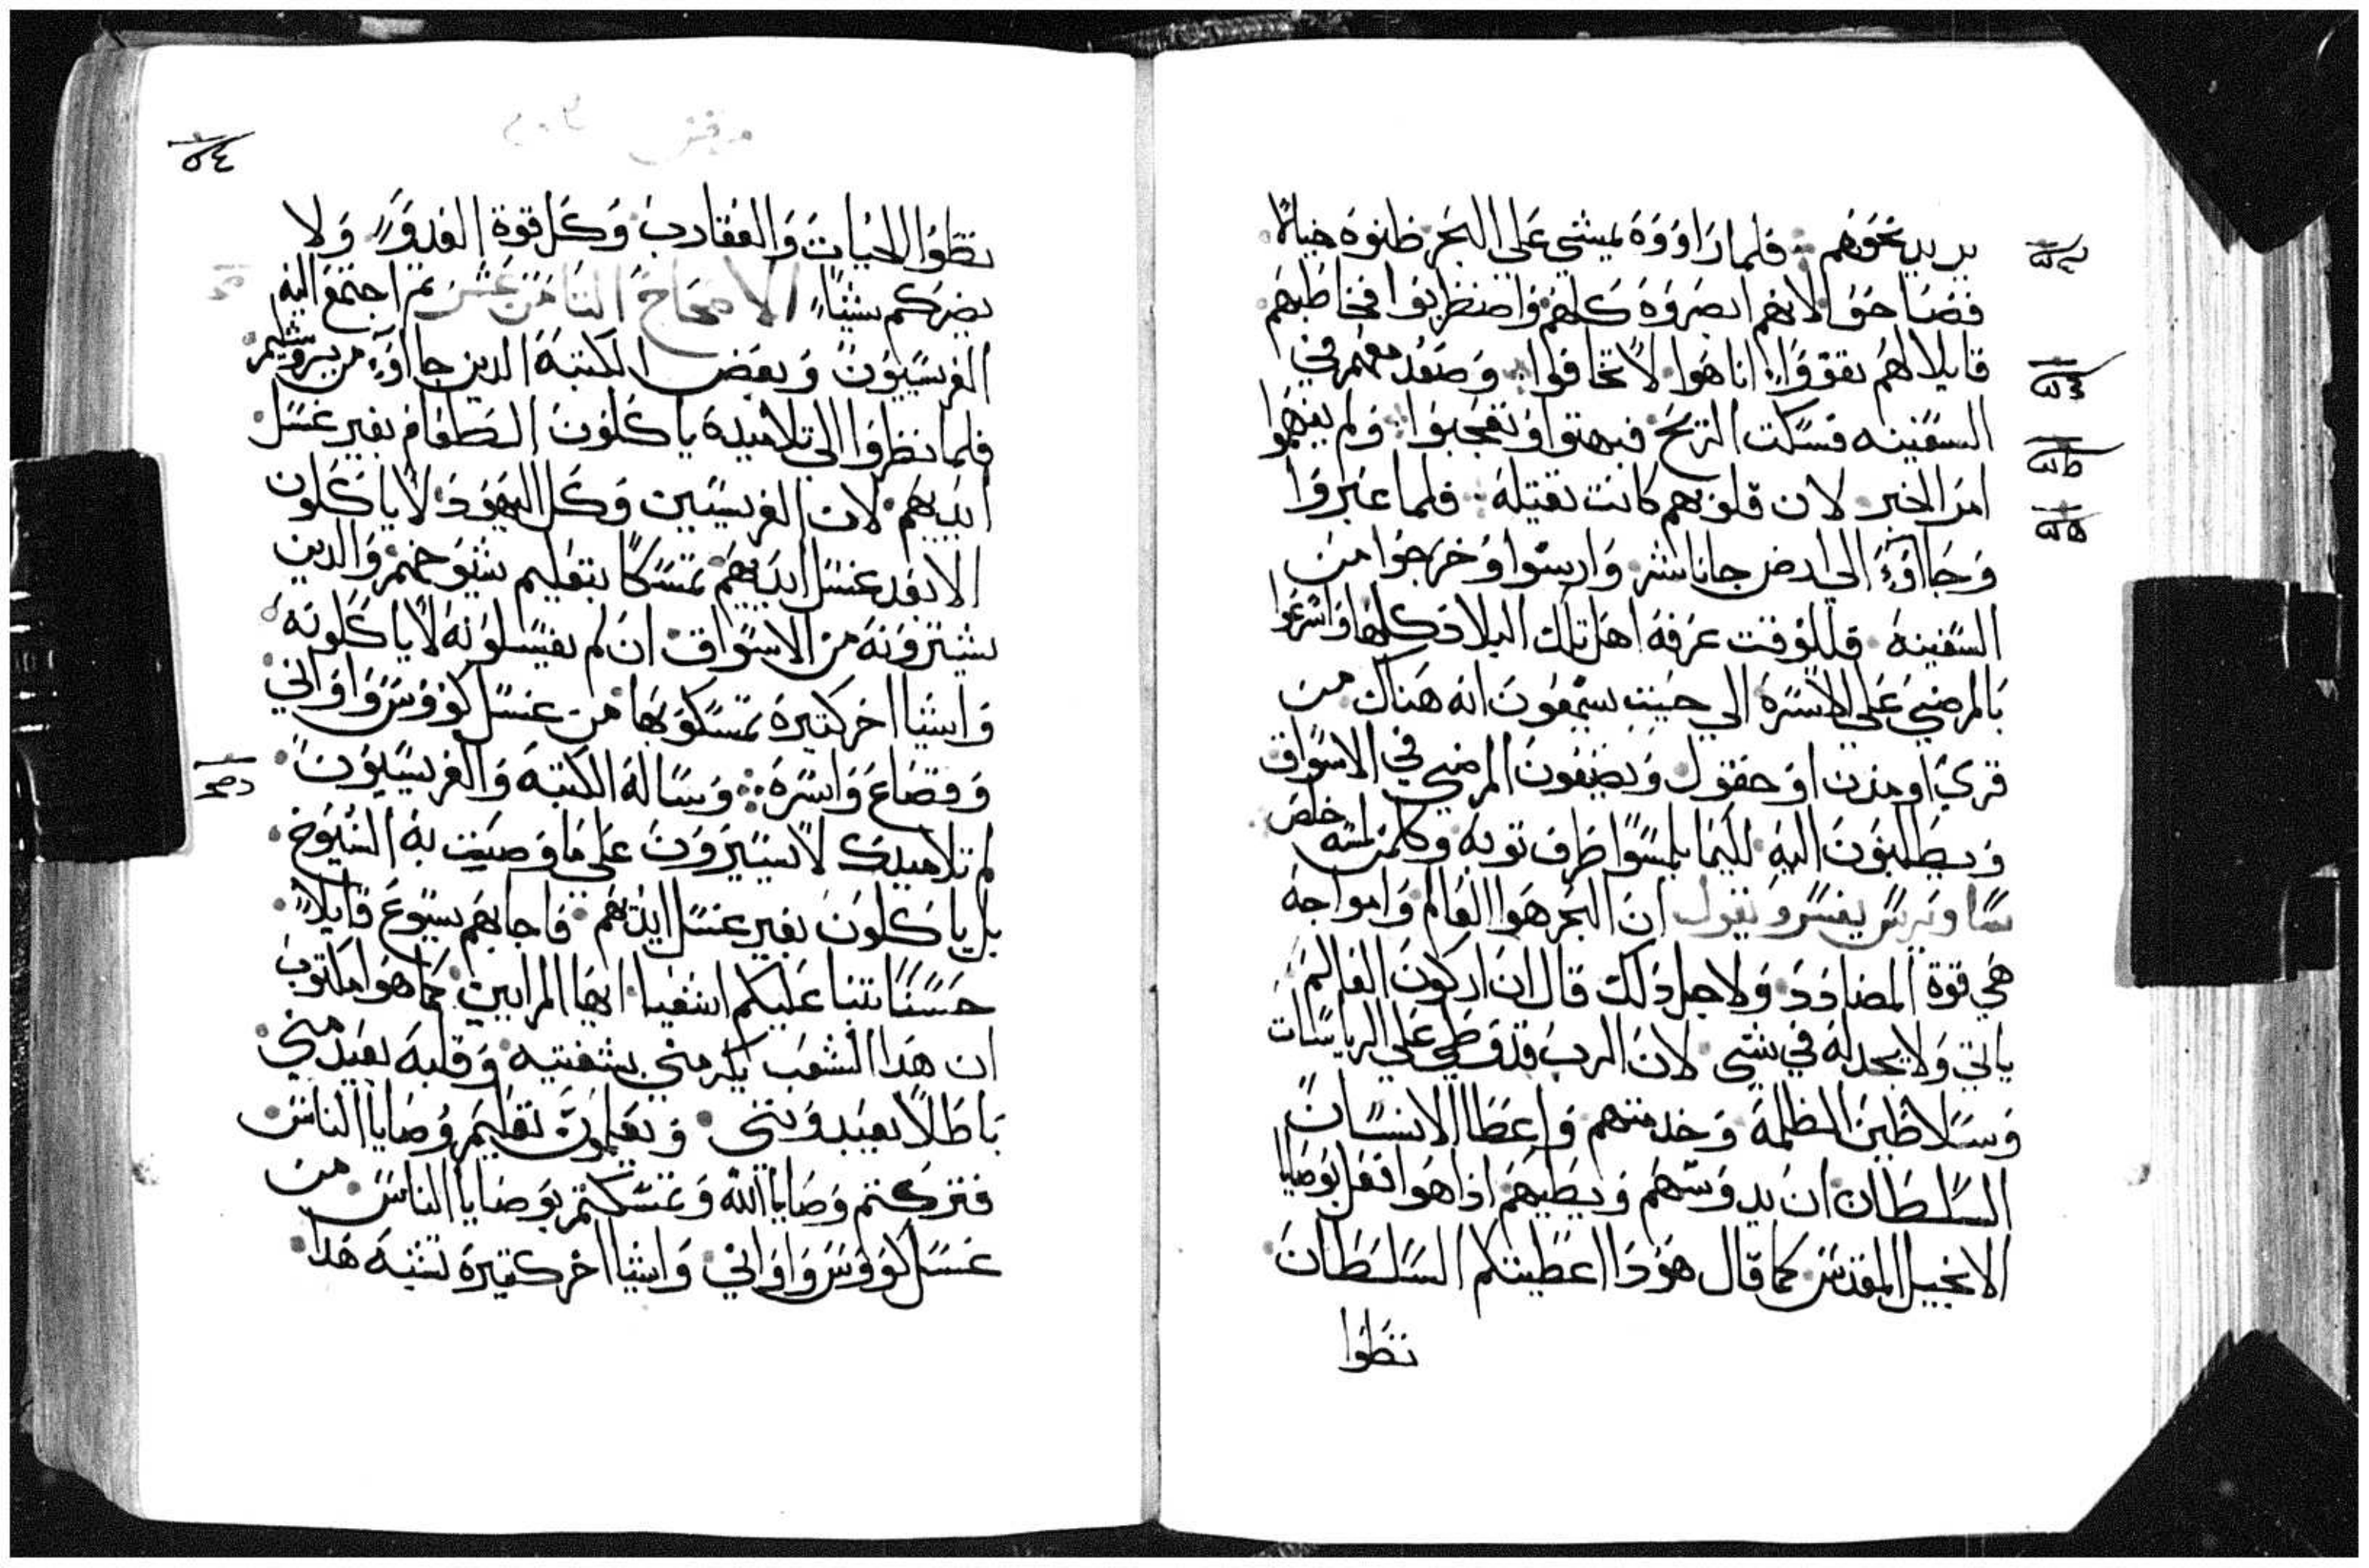 يريد نحوهم فلما راووه يمشي علي البحر ظنوه خيالاً
فصاحوا لانهم ابصروه كلهم واضطربوا فخاطبهم
قايلا لهم تقووا انا هوا لا تخافوا وصعد معهم في
السفينه فسكت الريح فبهتوا وتعجبوا ولم يفهموا
امر الخبز لان قلوبهم كانت تقيلة فلما عبروا
وجاوء الي ارض جاناشر وارسوا وخرجوا من
السفينه فللوقت عرفه اهل تلك البلاد كلها واسرعوا
بالمرضي علي الاسره الي حيت يسمعون انه هناك من
قري او مدن او حقول ويضعون المرضي في الاسواق
ويطلبون اليه لكيما يلمسوا طرف توبه وكلمن لمسه خلص
يفسر ويقول ان البحر هوا العالم وامواجه
هي قوة المضادد ولاجل دلك قال ان اركون العالم
ياتي ولا يجد له في شي لان الرب قد وطي علي الرياسات
وسلاطين الظلمة وخدمتهم واعطا الانسان
السلطان ان يدوسهم ويطيهم اذا هوا فعل بوصايا
الانجيل المقدس كما قال هودا اعطيتكم السلطان
تطوا
٥٤
تطوا الحيات والعقارب وكل قوة العدو ولا
يضركم شيئا الاصحاح التامن عشر تم اجتمع اليه
الفريسيون وبعض الكتبة الدين جااوء من يروشليم
فلما نظروا الي تلاميده ياكلون الطعام بغير غسل
ايديهم لان الفريسيين وكل اليهود لا ياكلون
الا بعد غسل ايديهم تمسكا بتعليم شيوخهم والدين
يشترونه من الاسواق ان لم يغسلونه لا ياكلونه
واشيا اخر كتيرة تمسكو بها من غسل كووس واواني
وقصاع واسره وساله الكتبه والفريسيون
لم تلاميدك لا يسيرون علي ما وصيت به الشيوخ
بل ياكلون بغير غسل ايديهم فاجابهم يسوع قايلا
حسنا تنبا عليكم اشعيا ايها المرايين كما هوا مكتوب
ان هدا الشعب يكرمني بشفتيه وقلبه بعيد مني
باطلا يعبدونني ويعلمون تعليم وصايا الناس
فتركتم وصايا الله وتمسكتم بوصايا الناس من
غسل كووس واواني واشيا اخر كتيرة تشبه هدا